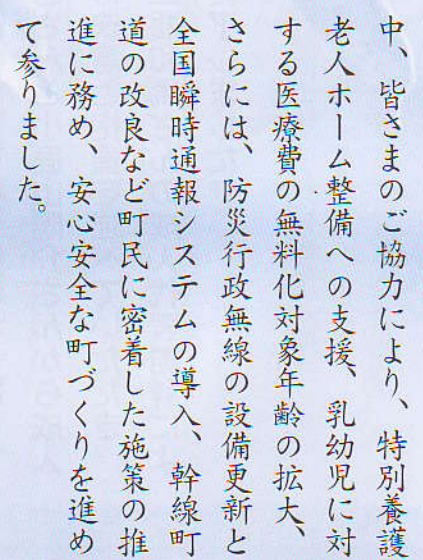 中、皆さまのご協力により、特別養護
老人ホーム整備への支援、乳幼児に対
する医療費の無料化対象年齢の拡大、
さらには、防災行政無線の設備更新と
全国瞬時通報システムの導入、幹線町
道の改良など町民に密着した施策の推
進に務め、安心安全な町づくりを進め
て参りました。